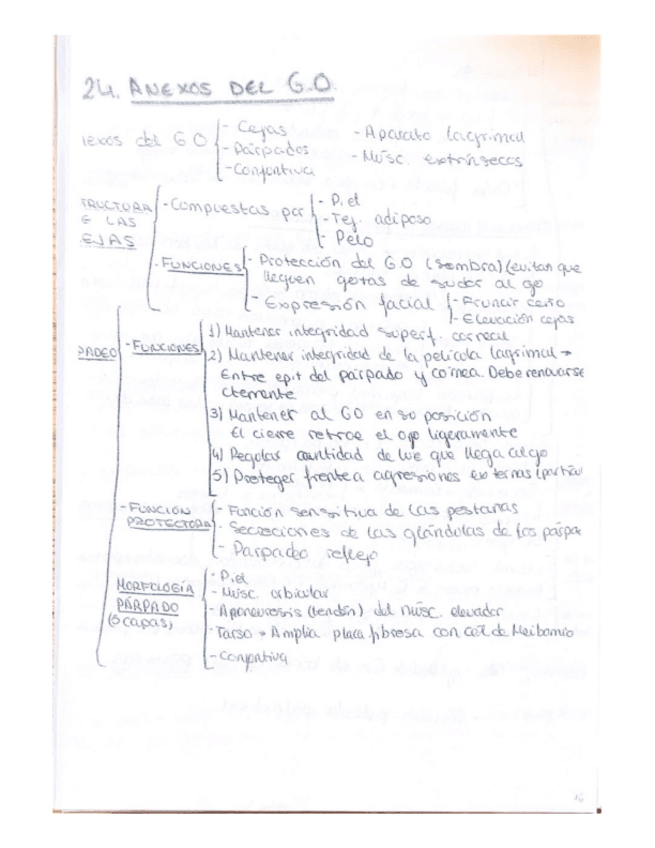 24. ANEXOS DEL G.O.
iexos del GO - Cejas - Aparato lagrimal
- Párpados - Músc. extrínsecos
- Conjontiva
TRUCTURA E LAS EJAS - Compuestas por - Piel
- Tej. adiposo
- Pelo
- FUNCIONES - Protección del G.O (sombra) (evitan que
lleguen gotas de sudor al go
- Expresión facial - Fruncir ceño
- Elevación cejas
PADEO - FUNCIONES 1) Mantener integridad superf. corneal
2) Mantener integridad de la película lagrimal →
Entre epit del párpado y córnea. Debe renovarse
cтemente
3) Mantener al GO en su posición
El cierre retrae el ojo ligeramente
4) Regular cantidad de luz que llega al ojo
5) Proteger frente a agresiones externas (partícul
- FUNCIÓN PROTECTORA - Función sensitiva de las pestañas
- Secreciones de las glándulas de los párpa
- Parpadeo reflejo
MORFOLOGÍA PÁRPADO (5 capas) - Piel
- Músc. orbicular
- Aponeurosis (tendón) del músc. elevador
- Tarso → Amplia placa fibrosa con cél de Meibomio
- Conjontiva
16